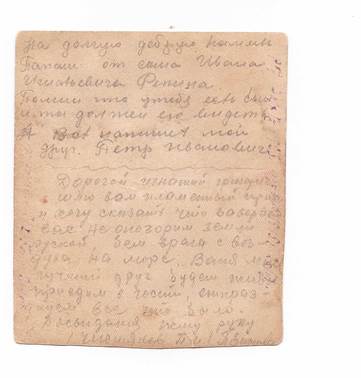 на долгую добрую память
Папаш от сына Ивана
Игнатьевича Репина.
Помни что утебя есть сын
и ты должен его видеть
А Вот напишет мой
друг. Петр Иванович
Дорогой игнатий
шлю вам пламенный
и хочу сказать что
вас не опозорим земли
руской. бем врага с воз
духа, на море. Ваня мой
лучший друг будем жи
приедим в гости,
все что было.
Досвидания жму руку